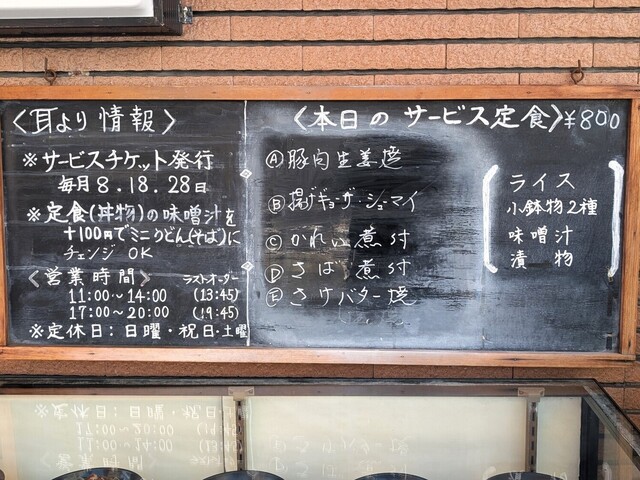 〈耳より情報〉
※サービスチケット発行
毎月8.18.28日
※定食(丼物)の味噌汁を
+100円でミニうどん(そば)に
チェンジ OK
〈営業時間〉 ラストオーダー
11:00〜14:00 (13:45)
17:00〜20:00 (19:45)
※定休日:日曜・祝日・土曜
〈本日の サービス定食〉¥800
Ⓐ豚肉生姜焼
Ⓑ揚げギョーザ・シューマイ
Ⓒかれい煮付
Ⓓさば煮付
Ⓔさけバター焼
ライス
小鉢物2種
味噌汁
漬 物